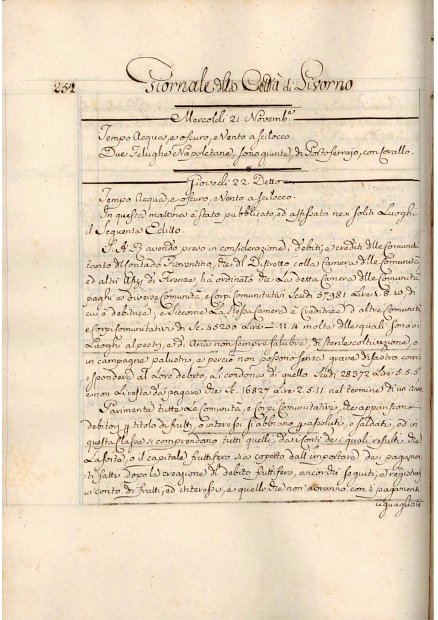 252 Giornale della Città di Livorno
Mercoledì 21 Novemb.e
Tempo Acqua, e oscuro, e Vento a Scilocco.
Due Felughe Napoletane, sono giunte, di Portoferrajo, con Corallo.
Giovedì 22 Detto
Tempo Acqua, e oscuro, e Vento a Scilocco.
In questa mattina è stato pubblicato, ed affissato nei soliti Luoghi
il Seguente Editto.
S. A. R. avendo preso in considerazione, i debiti, e crediti delle Comunità
tanto del Contado Fiorentino, che del Distretto colla Camera delle Comunità
ed altri di Firenze ha ordinato che La detta Camera delle Comunità
paghi a diverse Comunità, e Corpi Comunitativi Scudi 57981 Lire 1.8.10, di
cui è debitrice, e Siccome La Stessa Camera è Creditrice d'altre Comunità
e Corpi Comunitativi di Sc. 45200 Lire — 11.4 molte delle quali Sono in
Luoghi alpestri, ed di Aria non sempre salubre, di sterile coltivazione, o
in campagne palustri, e perciò non possono senza grave disastro corri-
spondere al Loro debito, Li condona di quello Scudi 28372 Lire 5.5.5
e non Li resta da pagare che Sc. 16827 Lire 2.5.11. nel termine di un Anno.
Parimente tutte Le Comunità, e Corpi Comunitativi, che appariscono
debitori p titolo di frutti, o interessi si abbiano p assoluti, e Saldati, ed in
questa Classe si comprendano tutti quelli, da Conti dei quali resulti che
La Sorte, o il capitale fruttifero sia coperto dall'importare dei pagamen-
ti fatti dopo la creazione del debito fruttifero, ancorchè seguiti, e registrati
in conto di frutti, ed interessi, e quelle che non avranno con i pagamenti
uguagliato